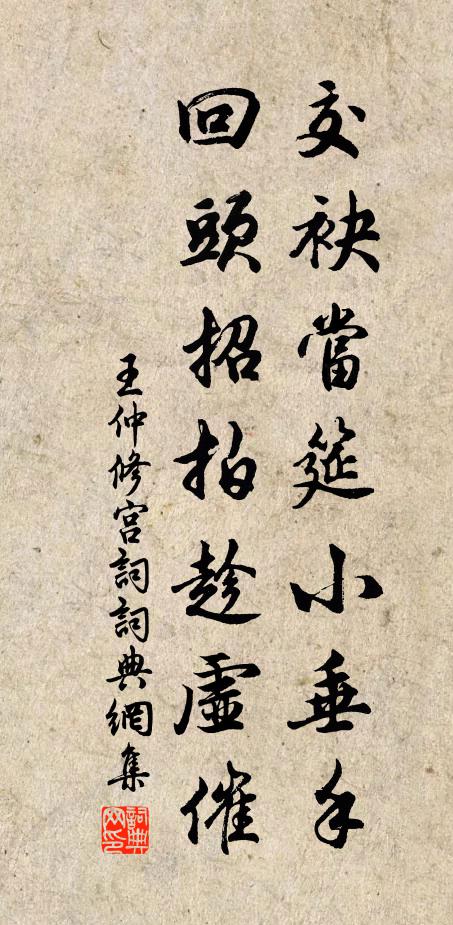 交袂當筵小垂手
回頭招拍趁虛催
王仲修宮詞詞典網集
詞典网印